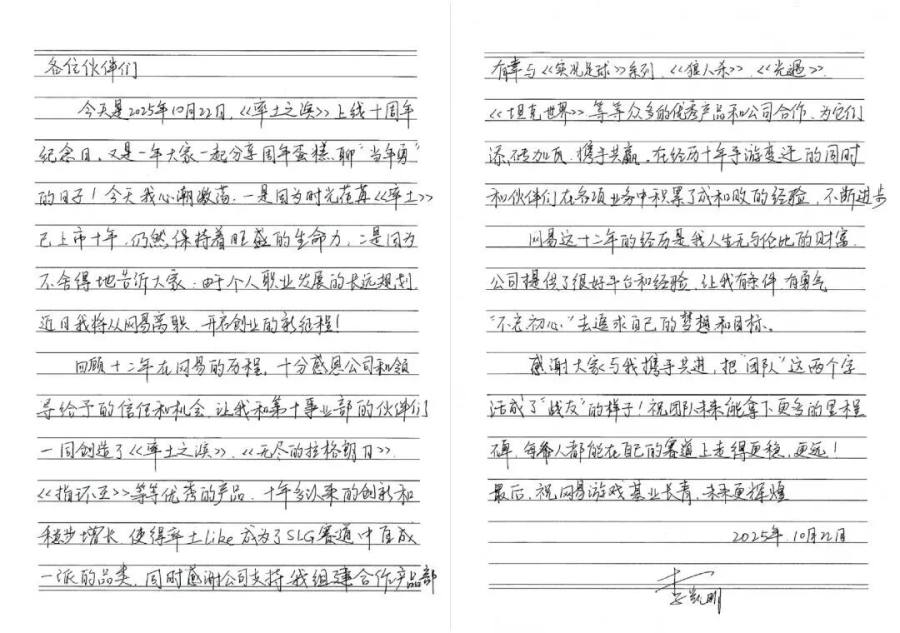 各位伙伴们
今天是2025年10月22日,《率土之滨》上线十周年
纪念日,又是一年大家一起分享周年蛋糕,聊"当年勇"
的日子!今天我心潮激荡,一是因为时光荏苒《率土》
已上市十年,仍然保持着旺盛的生命力,二是因为
不舍得地告诉大家,由于个人职业发展的长远规划
近日我将从网易离职,开启创业的新征程!
回顾十二年在网易的历程,十分感恩公司和领
导给予的信任和机会,让我和第十事业部的伙伴们
一同创造了《率土之滨》、《无尽的拉格朗日》、
《指环王》等等优秀的产品,十年多以来的创新和
稳步增长,使得率土like成为了SLG赛道中自成
一派的品类,同时感谢公司支持我组建合作产品部
有幸与《实况足球》系列、《狼人杀》、《光遇》、
《坦克世界》等等众多的优秀产品和公司合作,为它们
添砖加瓦,携手共赢,在经历十年手游变迁的同时
和伙伴们在各项业务中积累了成和败的经验,不断进步
网易这十二年的经历是我人生无与伦比的财富,
公司提供了很好平台和经验,让我有条件 有勇气
"不忘初心"去追求自己的梦想和目标。
感谢大家与我携手共进,把"团队"这两个字
活成了"战友"的样子!祝团队未来能拿下更多的里程
碑,每个人都能在自己的赛道上走得更稳,更远!
最后,祝网易游戏基业长青,未来更辉煌
2025年10月22日
李凯明